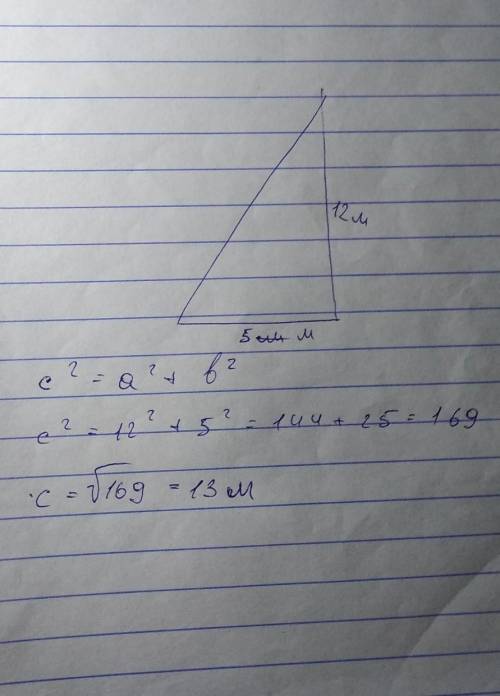 12м
5 м
c² = a² + b²
c² = 12² + 5² = 144 + 25 = 169
c = √169 = 13 м